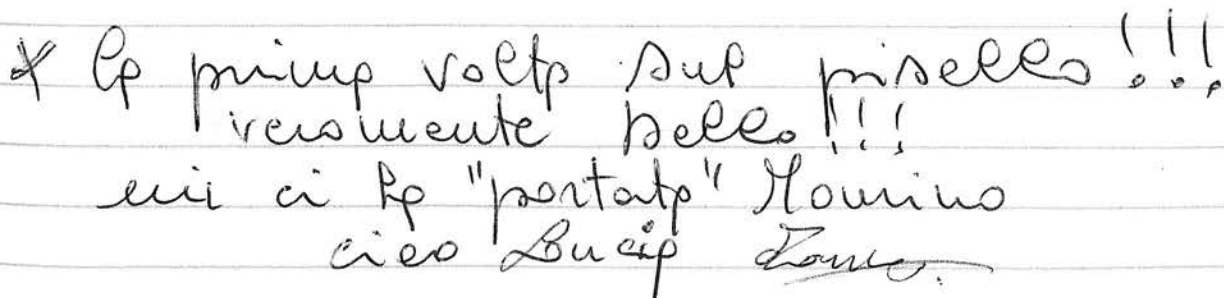 * la prima volta sul pisello!!!
veramente bello!!!
mi ci ha "portata" Mounino
ciao Lucia